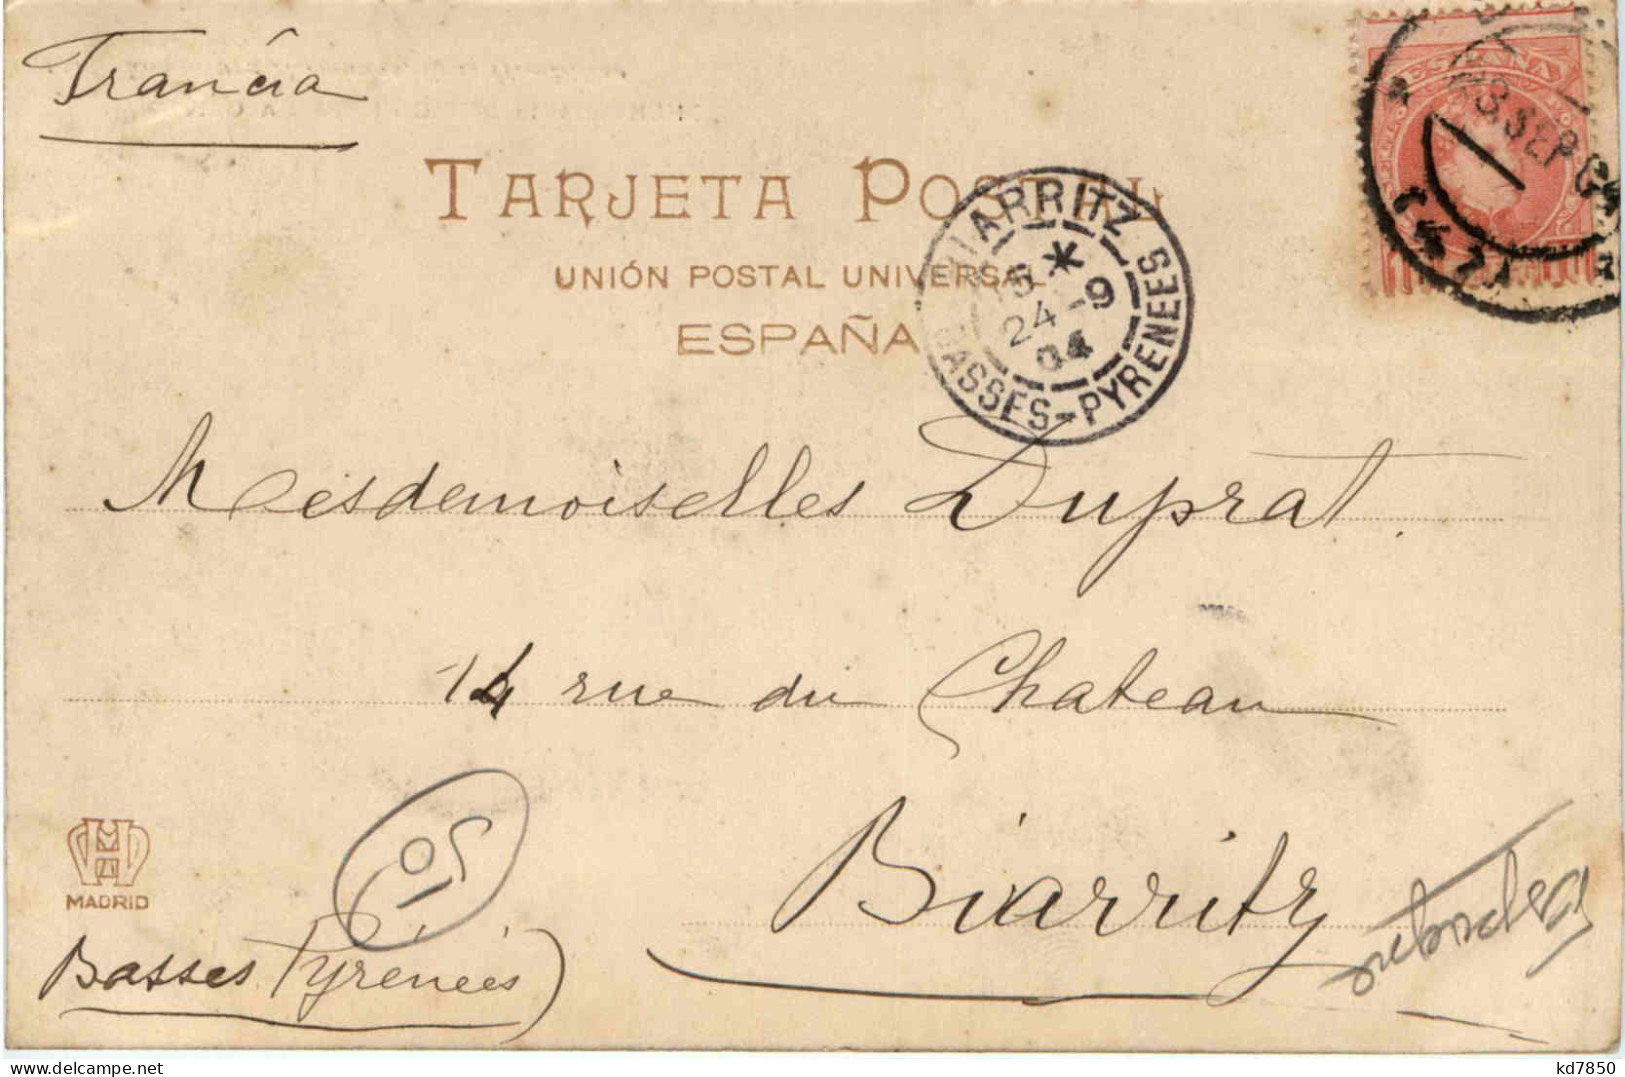 Francia
TARJETA POSTAL
UNIÓN POSTAL UNIVERSAL
ESPAÑA
ESPAÑA
SEP
BIARRITZ
24-9
04
BASSES-PYRENEES
Mesdemoiselles Duprat.
14 rue du Chateau
Biarritz
MADRID
Basses Pyrénées)
kd7850